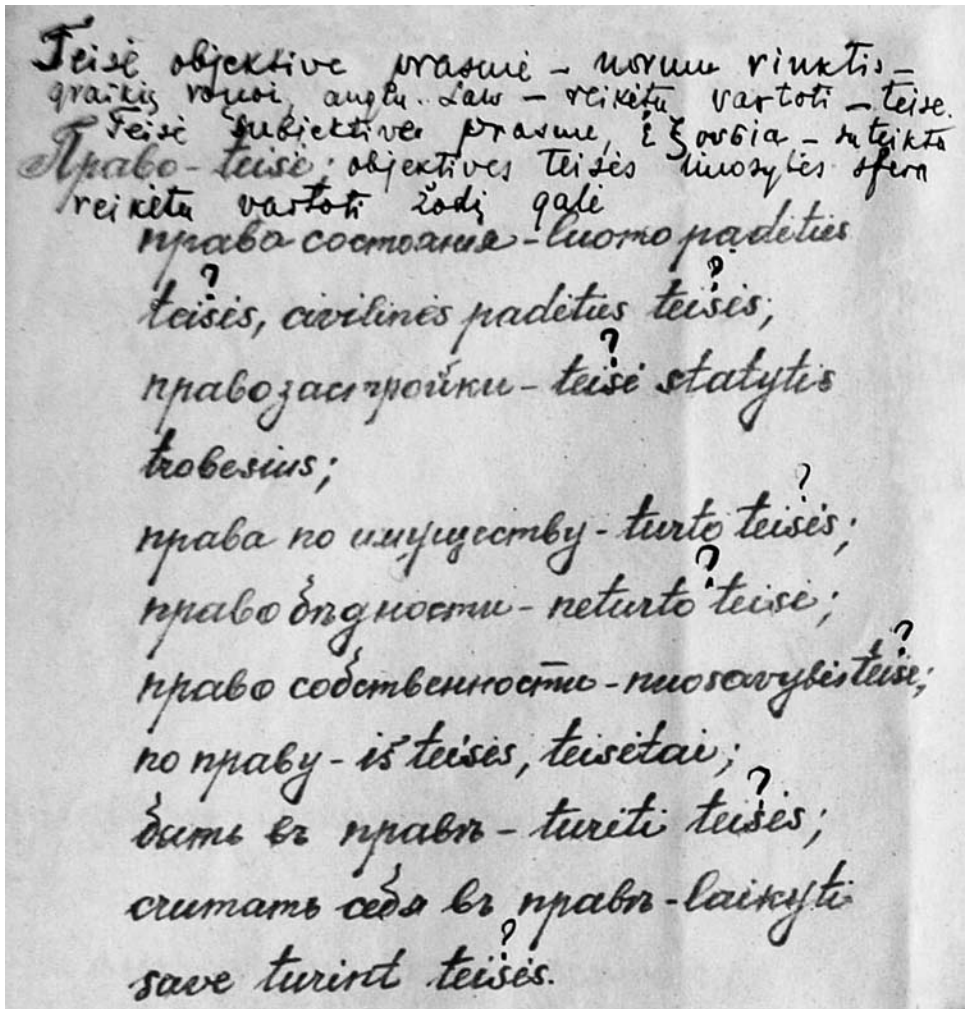 Teisė objektive prasme – normu rinktis –
graikų νομοι, anglu. Law – reikėtų vartoti – teise.
Teisė subjektive prasme, ἐξουσια – suteikta
Право – teisė; objektives teisės sfera
reikėtų vartoti žodį galė
права состоянiя – luomo padėties
? ?
teisės, civilinės padėties teisės;
?
право застройки – teisė statytis
trobesius;
?
права по имуществу – turto teisės;
?
право бѣдности – neturto teisė;
?
право собственности – nuosavybės teisė;
по праву – iš teisės, teisėtai;
?
быть въ правѣ – turėti teisės;
считать себя въ правѣ – laikyti
?
save turint teisės.